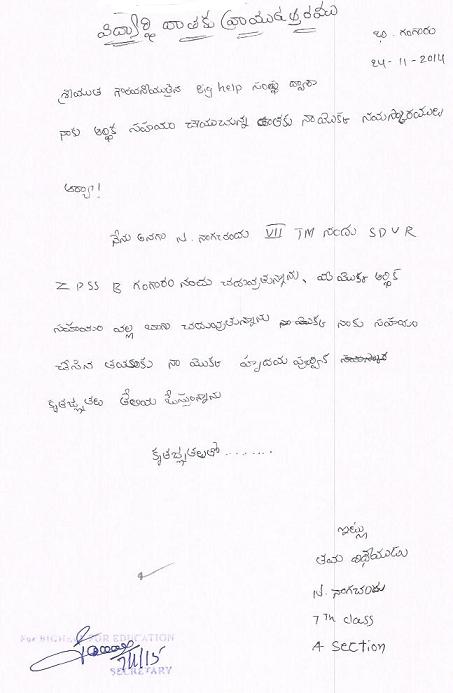 విద్యార్థి దాతకు వ్రాయు ఉత్తరము
భి. గంగారం
24-11-2014
శ్రీయుత గౌరవనీయులైన Big help సంస్థ ద్వారా
నాకు ఆర్థిక సహయం చేయుచున్న దాతకు నా యొక్క నమస్కారములు
అయ్యా!
నేను అనగా VII TM నందు SDVR
Z PSS B గంగారం నందు చదువుతున్నాను. మీ యొక్క ఆర్థిక
సహయం వల్ల బాగా చదువుతున్నాను నా యొక్క నాకు సహయం
చేసిన దాతకు నా యొక్క హృదయ పూర్వక
కృతజ్ఞతలు తెలియ చేస్తున్నాను
కృతజ్ఞతలతో........
ఇట్లు
తమ విధేయుడు
7th class
A section
For BIGHELP FOR EDUCATION
SECRETARY